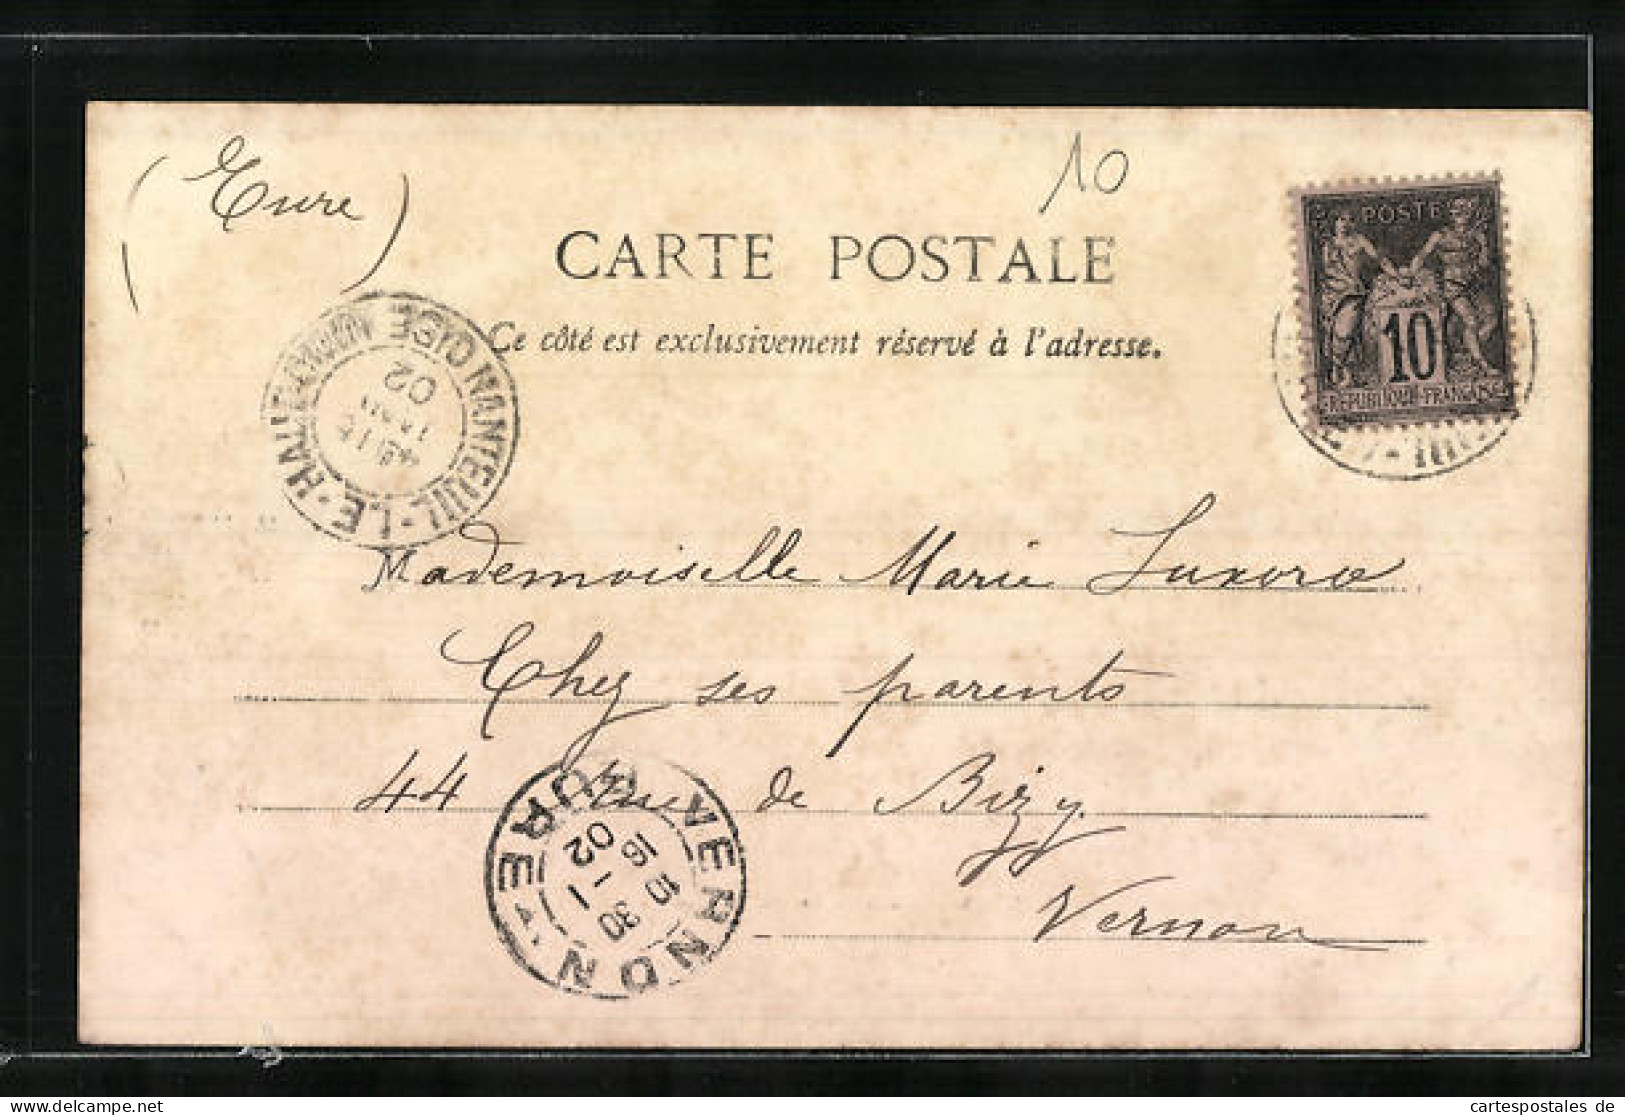 (Eure)
10
CARTE POSTALE
Ce côté est exclusivement réservé à l'adresse.
POSTE
10
REPUBLIQUE-FRANÇAISE
NANTEUIL-LE-HAUDOUIN OISE
15
JANV
02
Mademoiselle Marie
Chez ses parents
44 Rue de Bizy.
Vernon
VERNON EURE
16 15 30
1
02
cartespostales de